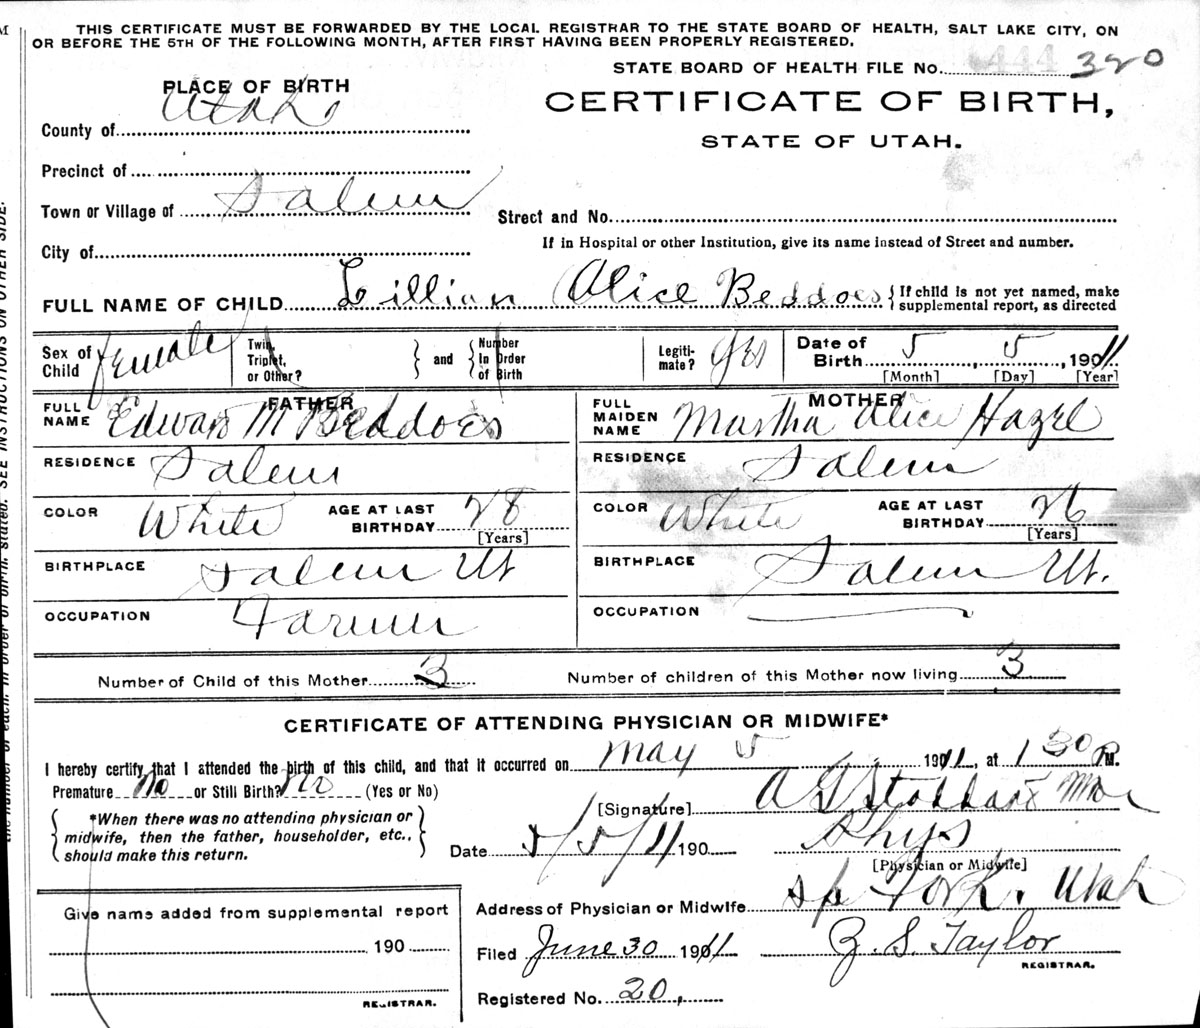 THIS CERTIFICATE MUST BE FORWARDED BY THE LOCAL REGISTRAR TO THE STATE BOARD OF HEALTH, SALT LAKE CITY, ON
OR BEFORE THE 5TH OF THE FOLLOWING MONTH, AFTER FIRST HAVING BEEN PROPERLY REGISTERED.
STATE BOARD OF HEALTH FILE No. 320
PLACE OF BIRTH
CERTIFICATE OF BIRTH,
STATE OF UTAH.
County of Utah
Precinct of
Town or Village of Salem
Street and No.
City of
If in Hospital or other Institution, give its name instead of Street and number.
FULL NAME OF CHILD Lillian Alice Beddoes { If child is not yet named, make
supplemental report, as directed
Sex of Child female Twin, Triplet, or Other? } and { Number In Order of Birth Legitimate? yes Date of Birth 5, 5, 1911
[Month] [Day] [Year]
FATHER MOTHER
FULL NAME Edward M Beddoes FULL MAIDEN NAME Martha Alice Hazel
RESIDENCE Salem RESIDENCE Salem
COLOR White AGE AT LAST BIRTHDAY 28 [Years] COLOR White AGE AT LAST BIRTHDAY 26 [Years]
BIRTHPLACE Salem Ut BIRTHPLACE Salem Ut.
OCCUPATION Farmer OCCUPATION
Number of Child of this Mother 3 Number of children of this Mother now living 3
CERTIFICATE OF ATTENDING PHYSICIAN OR MIDWIFE*
I hereby certify that I attended the birth of this child, and that it occurred on May 5 1911, at 1 30 P.M.
Premature No or Still Birth? No (Yes or No)
[Signature] A G Stoddard
*When there was no attending physician or
midwife, then the father, householder, etc.,
should make this return.
Date 5/5/11 190 Phys
[Physician or Midwife]
Give name added from supplemental report
190
REGISTRAR.
Address of Physician or Midwife Sp Fork. Utah
Filed June 30 1911 Z. S. Taylor
REGISTRAR.
Registered No. 20.